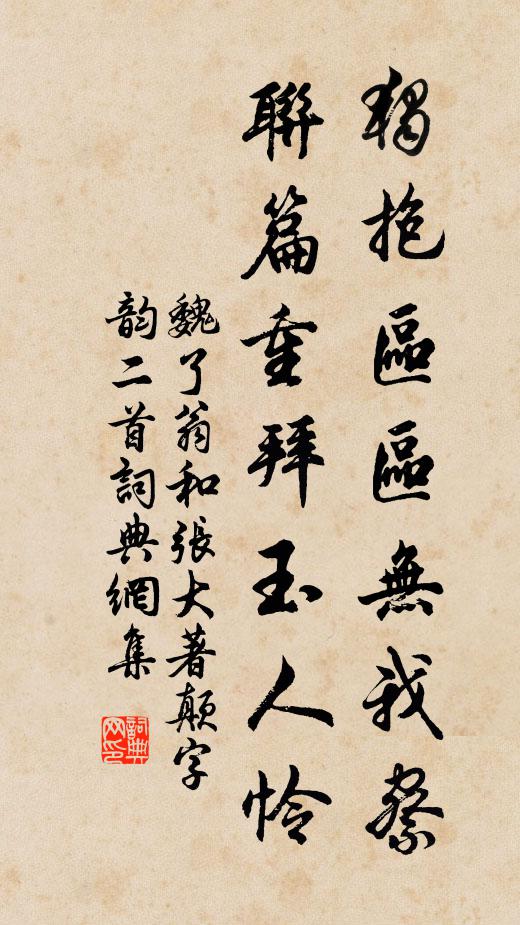 獨抱區區無我察
聯篇重拜玉人怜
魏了翁和張大著顛字
韵二首詞典網集
詞典
网印